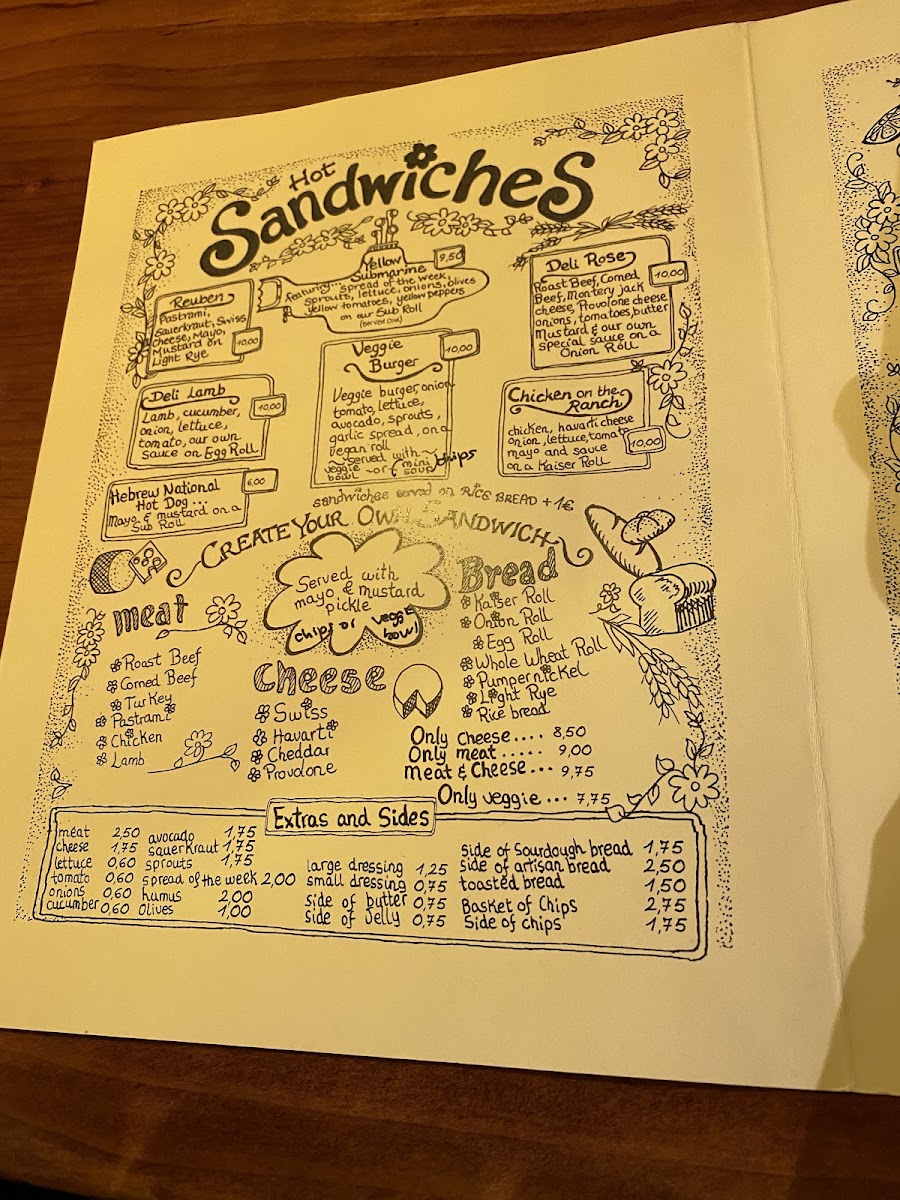 Hot
Sandwiches
Reuben
Pastrami,
Sauerkraut, Swiss
Cheese, Mayo,
Mustard on
Light Rye
10,00
Yellow
Submarine
9,50
featuring... spread of the week,
sprouts, lettuce, onions, olives
yellow tomatoes, yellow peppers
on our Sub Roll
(served cold)
Deli Rose
10,00
Roast Beef, Corned
Beef, Montery jack
cheese, Provolone cheese
onions, tomatoes, butter
Mustard & our own
special sauce on a
Onion Roll
Deli Lamb
10,00
Lamb, cucumber,
onion, lettuce,
tomato, our own
sauce on Egg Roll
Veggie
Burger
10,00
Veggie burger, onion
tomato, lettuce,
avocado, sprouts,
garlic spread, on a
vegan roll
served with ~
veggie bowl ~or~ mini soup / chips
Chicken on the
Ranch
chicken, havarti cheese
onion, lettuce, tomato
mayo and sauce
on a Kaiser Roll
10,00
Hebrew National
Hot Dog...
6,00
Mayo & mustard on a
Sub Roll
sandwiches served on RICE BREAD +1€
CREATE YOUR OWN SANDWICH
Served with
mayo & mustard
pickle
chips or veggie
bowl
meat
Roast Beef
Corned Beef
Turkey
Pastrami
Chicken
Lamb
Cheese
Swiss
Havarti
Cheddar
Provolone
Bread
Kaiser Roll
Onion Roll
Egg Roll
Whole Wheat Roll
Pumpernickel
Light Rye
Rice bread
Only Cheese.... 8,50
Only meat ..... 9,00
Meat & Cheese... 9,75
Only veggie ... 7,75
Extras and Sides
meat 2,50
cheese 1,75
lettuce 0,60
tomato 0,60
onions 0,60
cucumber 0,60
avocado 1,75
sauerkraut 1,75
sprouts 1,75
spread of the week 2,00
humus 2,00
Olives 1,00
large dressing 1,25
small dressing 0,75
side of butter 0,75
side of Jelly 0,75
side of sourdough bread 1,75
side of artisan bread 2,50
toasted bread 1,50
Basket of Chips 2,75
Side of chips 1,75